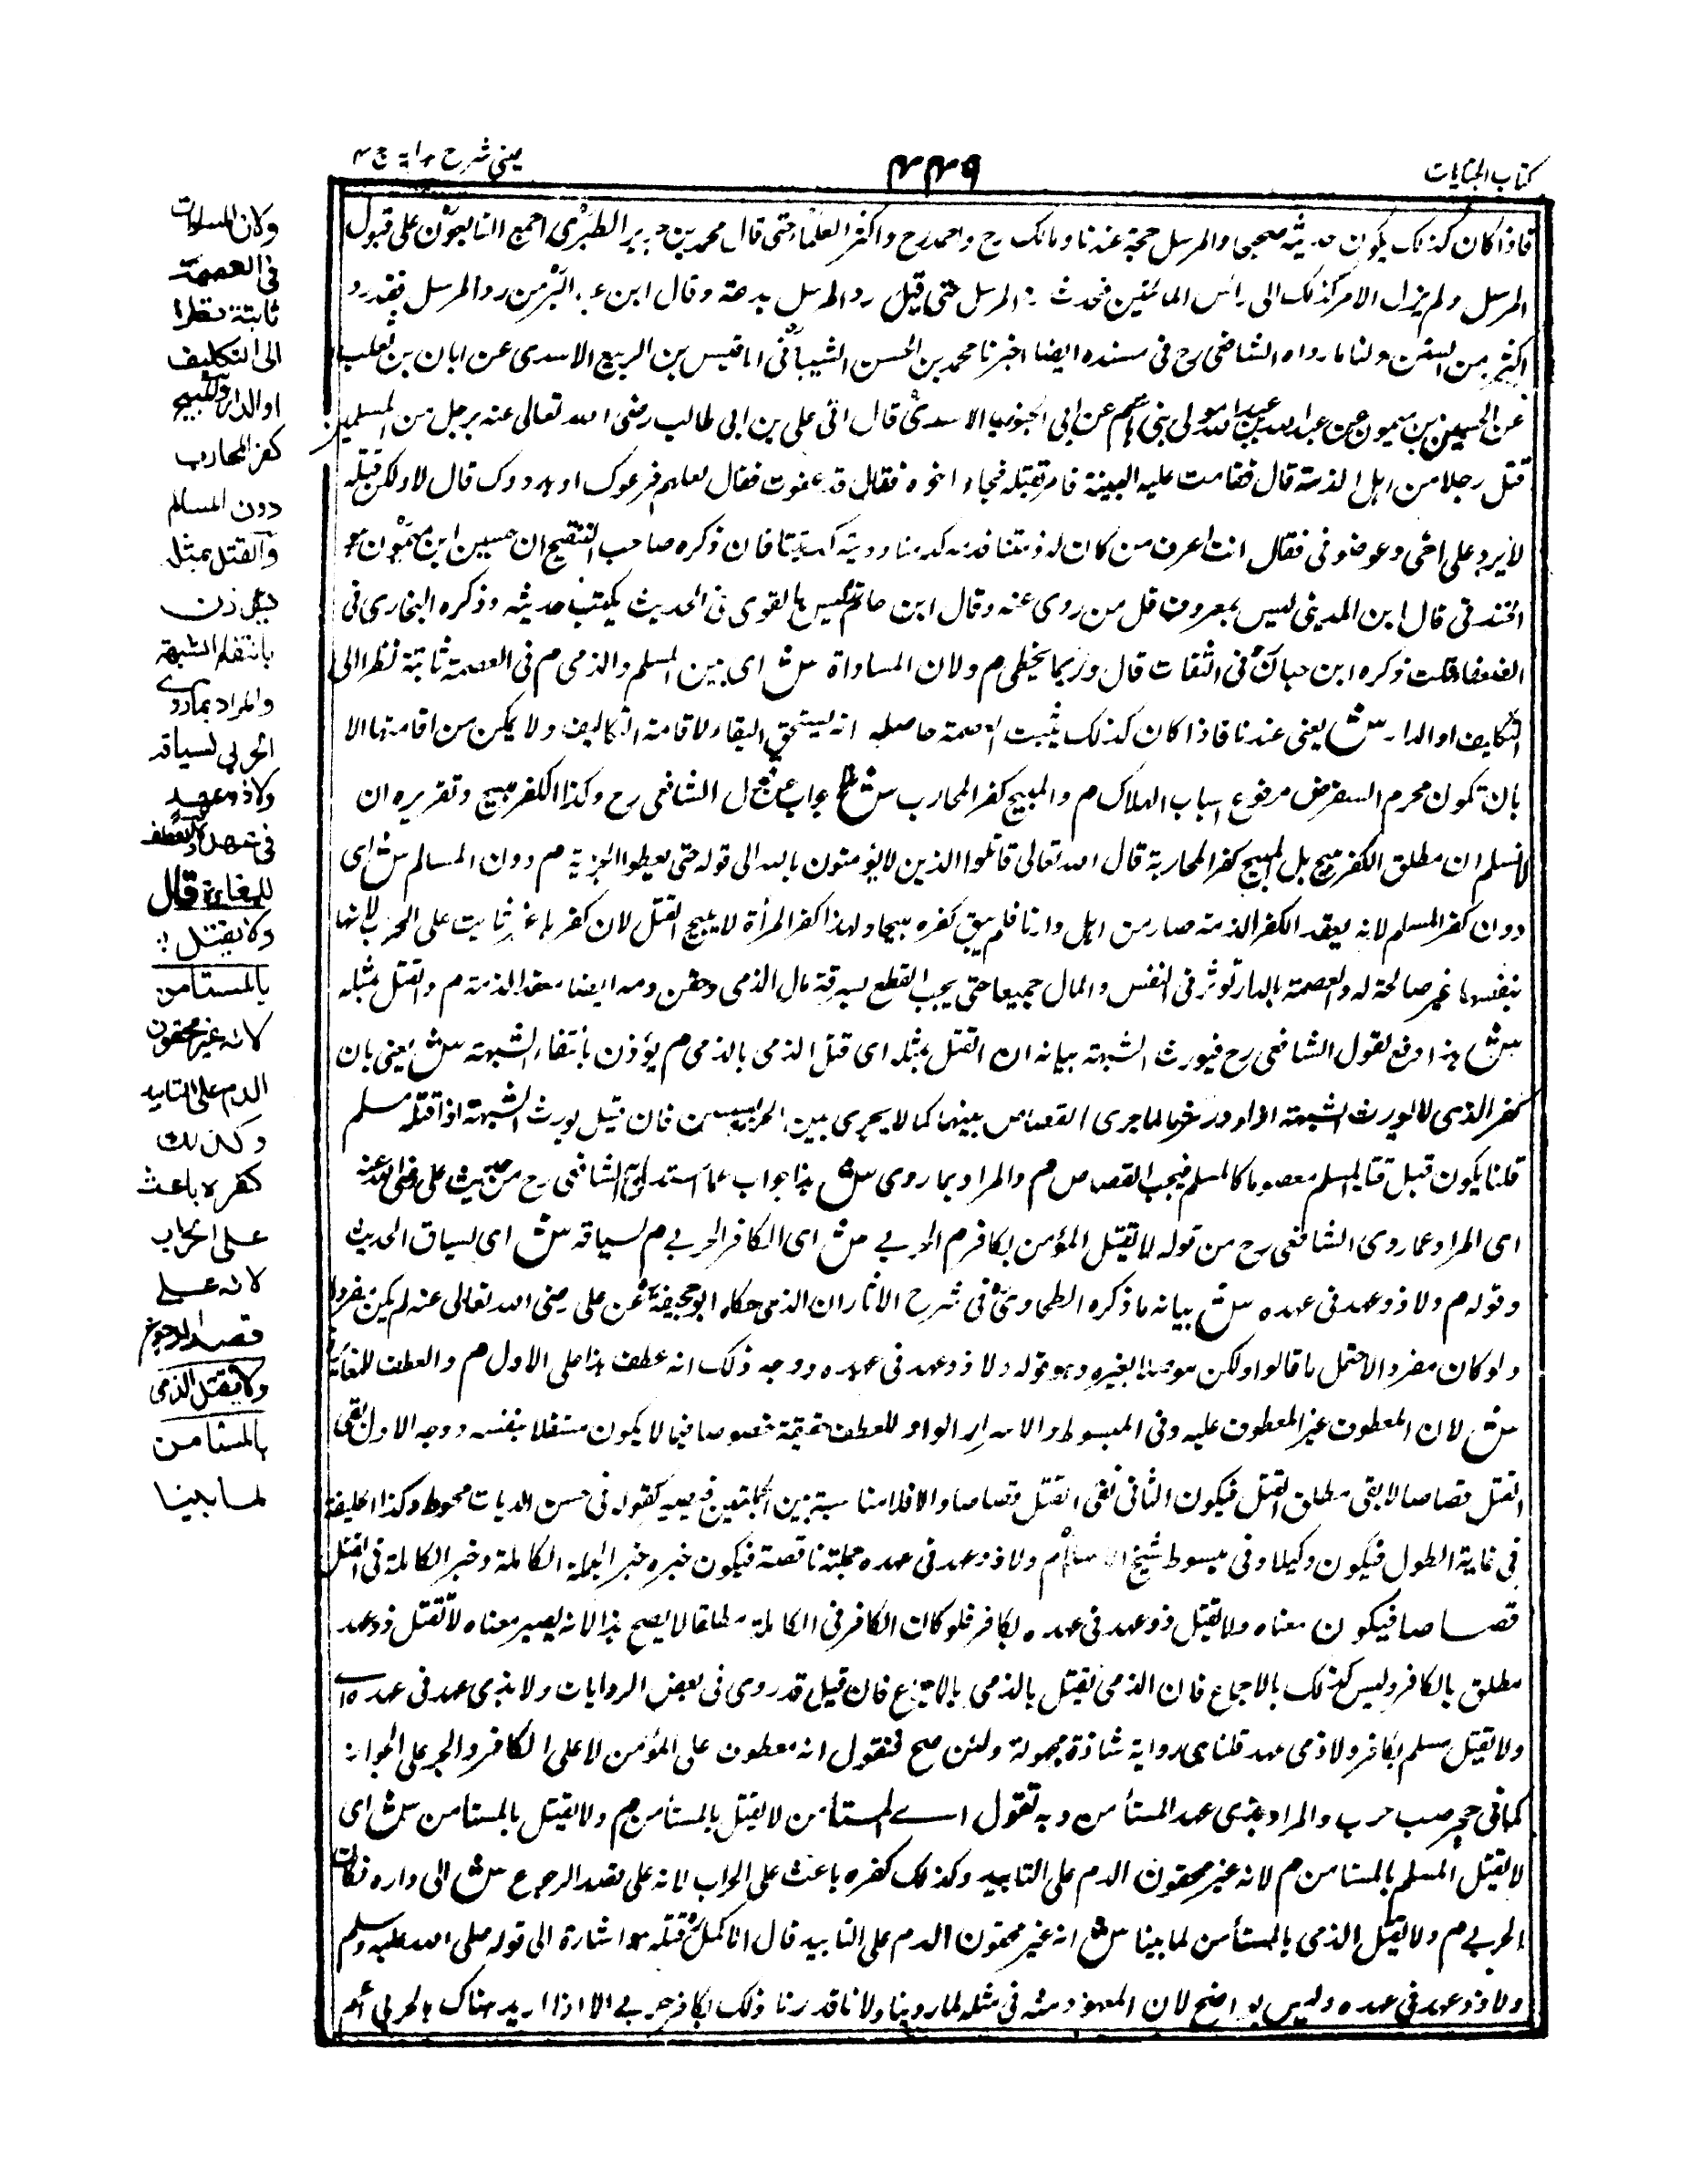 كتاب الجنايات
٤٤٩
عينى شرح هداية ج ٤
فاذا كان كذلك يكون حديثه صحيحا والمرسل حجة عندنا ومالك رح واحمد رح واكثر العلماء حتى قال محمد بن جرير الطبرى اجمع التابعون على قبول
المرسل ولم يزل الامر كذلك الى رأس المائتين فحدث رد المرسل حتى قيل رد المرسل بدعة وقال ابن عبد البر من رد المرسل فقد رد
اكثر من السنن ولنا ما رواه الشافعى رح فى مسنده ايضا اخبرنا محمد بن الحسن الشيبانى انا قيس بن الربيع الاسدى عن ابان بن تغلب
عن الحسين بن ميمون عن عبد الله بن عبد الله مولى بنى هاشم عن ابى الجنوب الاسدى قال اتى على بن ابى طالب رضى الله تعالى عنه برجل من المسلمين
قتل رجلا من اهل الذمة قال فقامت عليه البينة فامر بقتله فجاء اخوه فقال قد عفوت فقال لعلهم فزعوك او هددوك قال لا ولكن قتله
لا يرد على اخى وعوضونى فقال انت اعرف من كان له ذمتنا فدمه كدمنا وديته كديتنا فان ذكره صاحب التنقيح ان حسين ابن ميمون هو
الخندقى قال ابن المدينى ليس بمعروف قل من روى عنه وقال ابن حاتم ليس بالقوى فى الحديث يكتب حديثه وذكره البخارى فى
الضعفاء قلت ذكره ابن حبان فى الثقات قال وربما يخطى م ولان المساواة ش اى بين المسلم والذمى م فى العصمة ثابتة نظرا الى
التكليف او الدار ش يعنى عندنا فاذا كان كذلك يثبت العصمة حاصله انه يستحق البقاء لاقامة التكاليف ولا يمكن من اقامتها الا
بان تكون محرم التعرض مرفوع اسباب الهلاك م والمبيح كفر المحارب ش جواب عن قول الشافعى رح وكذا الكفر مبيح وتقريره ان
لا نسلم ان مطلق الكفر مبيح بل المبيح كفر المحاربة قال الله تعالى قاتلوا الذين لا يؤمنون بالله الى قوله حتى يعطوا الجزية م دون المسالم ش اى
دون كفر المسلم لانه بعقد الكفر الذمة صار من اهل دارنا فلم يبق كفره مبيحا ولهذا كفر المرأة لا يبيح القتل لان كفرها غير باعث على الحرب لانها
بنفسها غير صالحة له والعصمة بالدار توثر فى النفس والمال جميعا حتى يجب القطع بسرقة مال الذمى وحقن دمه ايضا بعقد الذمة م والقتل بمثله
ش هذا دفع لقول الشافعى رح فيورث الشبهة بيانه ان القتل بمثله اى قتل الذمى بالذمى م يؤذن بانتفاء الشبهة ش يعنى بان
كفر الذمى لا يورث الشبهة اذ لو اورثها لما جرى القصاص بينهما كما لا يجرى بين الحربيين فان قيل يورث الشبهة اذا قتله مسلم
قلنا يكون قبل قتل المسلم معصوما كالمسلم فيجب القصاص م والمراد بما روى ش هذا جواب عما استدل به الشافعى رح من حديث على رضى الله عنه
اى المراد عما روى الشافعى رح من قوله لا يقتل المؤمن بكافر م الحربى ش اى الكافر الحربى م لسياقه ش اى لسياق الحديث
وقوله م ولا ذو عهد فى عهده ش بيانه ما ذكره الطحاوى فى شرح الاثار ان الذى حكاه ابو جحيفة عن على رضى الله تعالى عنه لم يكن مفردا
ولو كان مفردا لاحتمل ما قالوا ولكن موصولا بغيره وهو قوله ولا ذو عهد فى عهده ووجه ذلك انه عطف هذا على الاول م والعطف للمغايرة
ش لان المعطوف غير المعطوف عليه وفى المبسوط والاسرار الواو للعطف حقيقة خصوصا فيما لا يكون مستقلا بنفسه ووجه الاول نفى
القتل قصاصا لا نفى مطلق القتل فيكون الثانى نفى القتل قصاصا والا فلا مناسبة بين الجملتين فيصير كقوله فى حسن الديات محوط وكذا الخليفة
فى غاية الطول فيكون وكيلا وفى مبسوط شيخ الاسلام ولا ذو عهد فى عهده جملة ناقصة فيكون خبره خبر الجملة الكاملة وخبر الكاملة فى القتل
قصاصا فيكون معناه ولا يقتل ذو عهد فى عهده بكافر فلو كان الكافر فى الكاملة مطلقا لا يصح هذا لانه يصير معناه لا يقتل ذو عهد
مطلق بالكافر وليس كذلك بالاجماع فان الذمى يقتل بالذمى بالاجماع فان قيل قد روى فى بعض الروايات ولا بذى عهد فى عهده اى
ولا يقتل مسلم بكافر ولا ذمى عهد قلنا هى رواية شاذة مجهولة ولئن صح فنقول انه معطوف على المؤمن لا على الكافر والجر على الجوار
كما فى جحر ضب خرب والمراد بذى عهد المستأمن وبه نقول اى المستأمن لا يقتل بالمستأمن م ولا يقتل بالمستامن ش اى
لا يقتل المسلم بالمستامن م لانه غير محقون الدم على التابيد وكذلك كفره باعث على الحراب لانه على قصد الرجوع ش الى داره فكان
الحربى م ولا يقتل الذمى بالمستأمن لما بينا ش انه غير محقون الدم على التابيد قال الاكمل قتله هو اشارة الى قوله صلى الله عليه وسلم
ولا ذو عهد فى عهده وليس بواضح لان المعهود منه فى مثله لما روينا ولانا قدرنا ذلك بكافر حربى الا اذا اريد هناك بالحربى اعم
ولان المساوات
فى العصمة
ثابتة نظرا
الى التكليف
او الدار والمبيح
كفر المحارب
دون المسالم
والقتل بمثله
يؤذن
بانتفاء الشبهة
والمراد بما روى
الحربى لسياقه
ولا ذو عهد
فى عهده والعطف
للمغايرة قال
ولا يقتل
بالمستامن
لانه غير محقون
الدم على التابيد
وكذلك
كفره باعث
على الحراب
لانه على
قصد الرجوع
ولا يقتل الذمى
بالمستامن
لما بينا